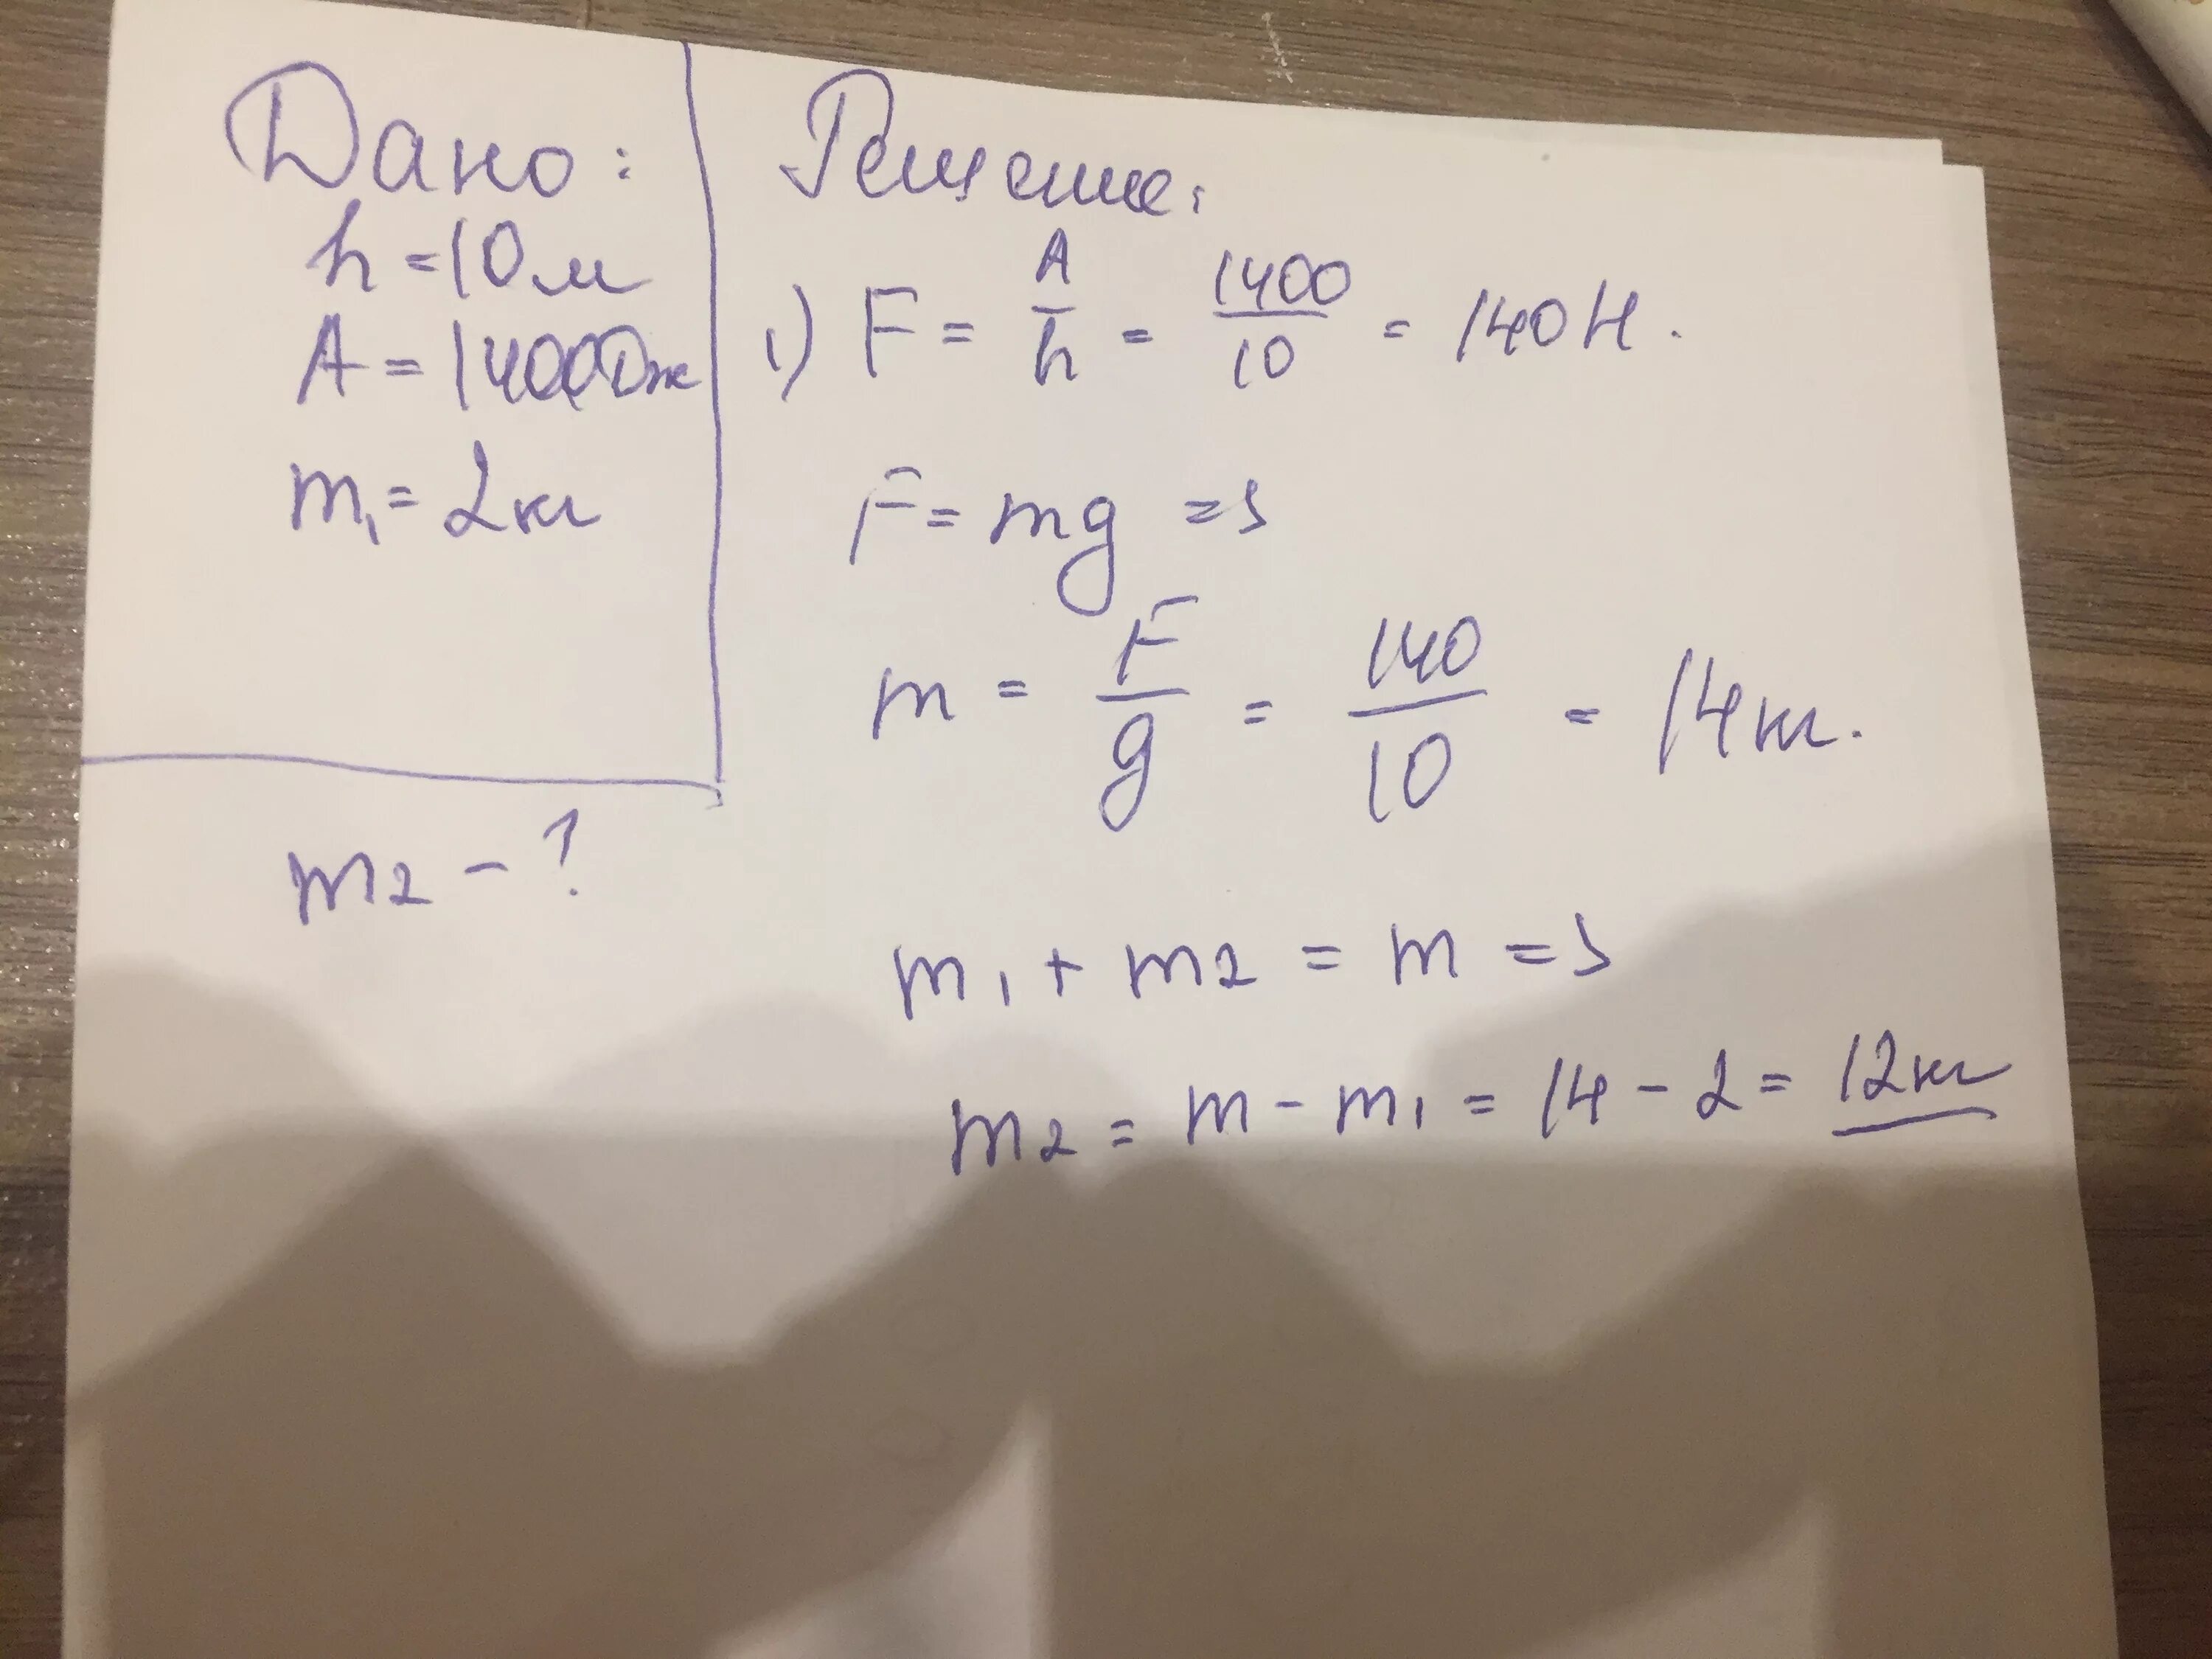 Дано:
h = 10 м
A = 1400 Дж
m₁ = 2 кг
m₂ - ?
Решение:
1) F = A/h = 1400/10 = 140 Н.
F = mg =>
m = F/g = 140/10 = 14 кг.
m₁ + m₂ = m =>
m₂ = m - m₁ = 14 - 2 = 12 кг